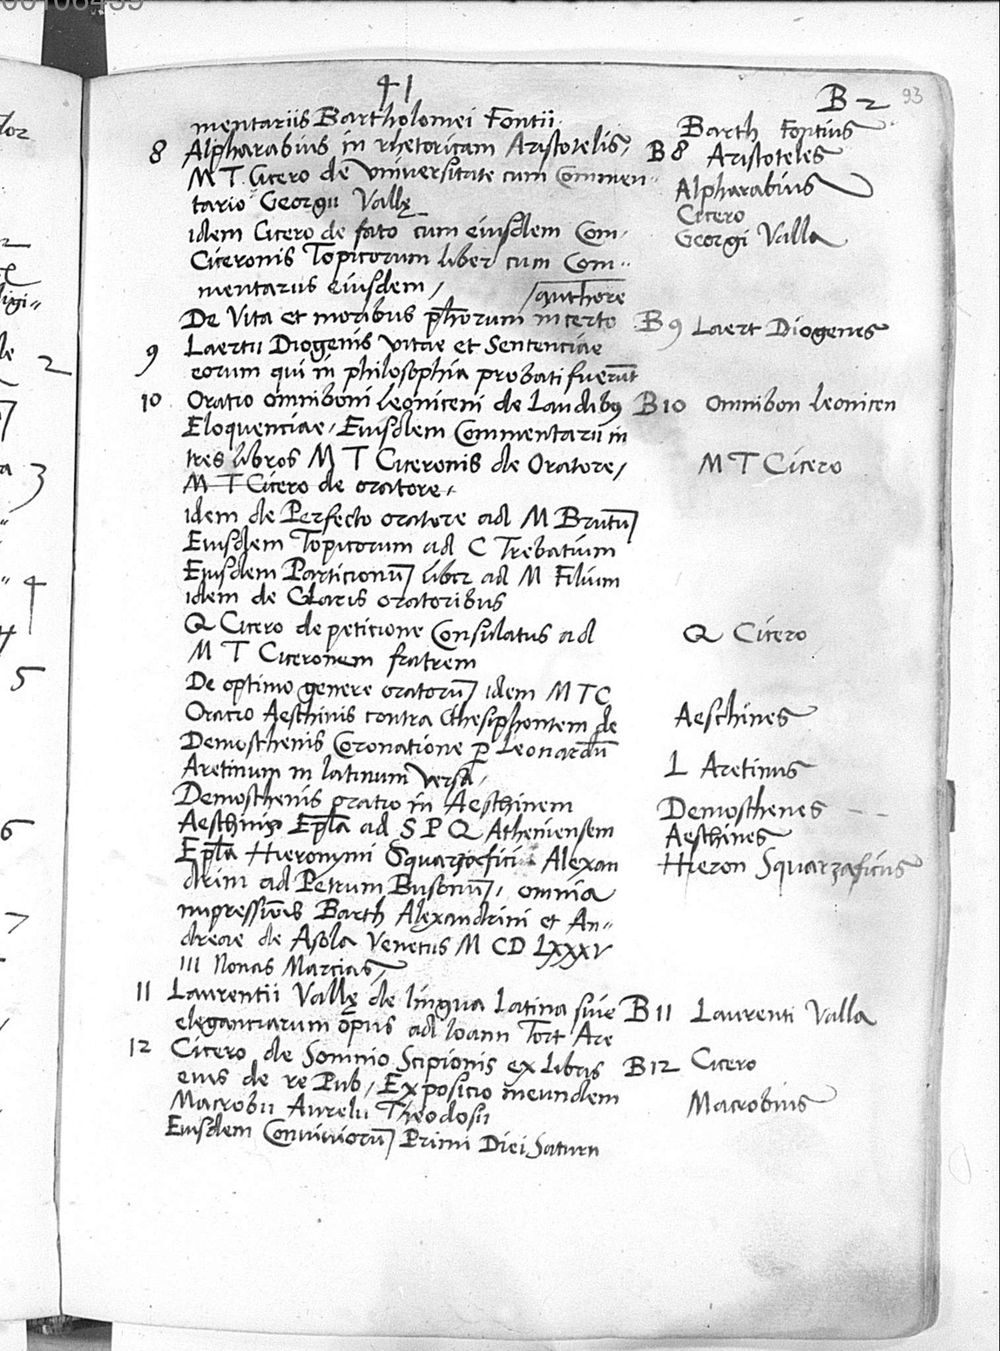 41
B 2 93
mentariis Bartholomei Fontii. Barth Fontius
8 Alpharabius in rhetoricam Aristotelis, B 8 Aristoteles
M T. Cicero de Universitate cum Commen- Alpharabius
tario Georgii Vallę Cicero
idem Cicero de fato cum eiusdem Com. Georgi Valla
Ciceronis Topicorum liber cum Com-
mentariis eiusdem, /authore
De Vita et moribus phorum incerto
9 Laertii Diogenis vitae et Sentenciae B 9 Laert Diogenes
eorum qui in philosophia probati fuerūt
10 Oratio omniboni leoniceni de Laudibus B 10 Omnibon leonicen
Eloquenciae, Eiusdem Commentarii in
tres libros M T Ciceronis de Oratore, M T Cicero
M T Cicero de oratore,
idem de Perfecto oratore ad M Brutū
Eiusdem Topicorum ad C Trebatium
Eiusdem Particionū liber ad M Filium
idem de Claris oratoribus
Q Cicero de peticione Consulatus ad Q Cicero
M T Ciceronem fratrem
De optimo genere oratorū idem M T C
Oratio Aeschinis contra Cthesiphontem de Aeschines
Demosthenis Coronatione p Leonardū
Aretinum in latinum versa, L Aretinus
Demosthenis oratio in Aeschinem Demosthenes
Aeschinis Epla ad S P Q Atheniensem Aeschines
Epla Hieronymi Squarzafici Alexan Hieron Squarzaficus
drini ad Petrum Busonū, omnia
impressiōis Barth Alexandrini et An-
dreae de Asola Venetiis M CD LXXXV
III Nonas Marcias,
11 Laurentii Vallę de lingua Latina siue B 11 Laurenti Valla
eleganciarum opus ad Ioann Tort Are
12 Cicero de Somnio Scipionis ex Libris B 12 Cicero
eius de re Pub, Exposicio in eundem
Macrobii Aurelii Theodosii Macrobius
Eiusdem Conviviorū Primi Diei Saturn
2
3
4
5
6
7